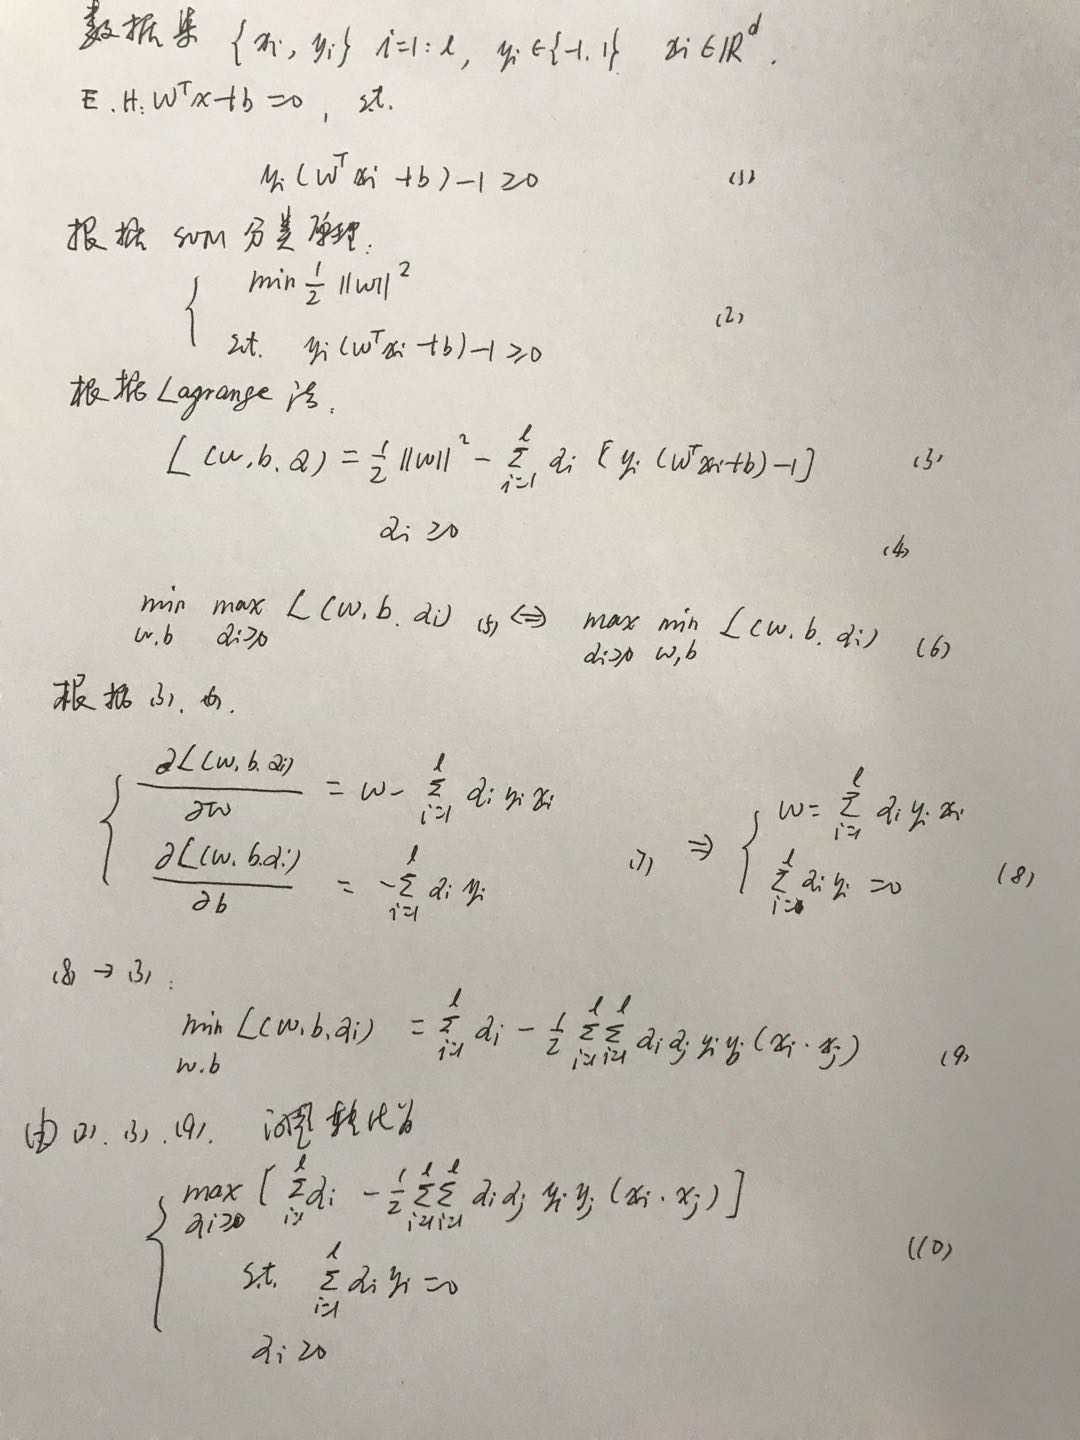 数据集 {xi, yi} i=1:l, yi∈{-1,1} xi∈ℝ^d.
E.H: W^T x+b=0, s.t.
yi(W^T xi+b)-1≥0 (1)
根据 SVM 分类原理:
min 1/2 ||w||^2
s.t. yi(W^T xi+b)-1≥0 (2)
根据 Lagrange 法,
L(w,b,α) = 1/2 ||w||^2 - Σ_{i=1}^{l} αi [yi(W^T xi+b)-1] (3)
αi≥0 (4)
min_{w,b} max_{αi≥0} L(w,b,αi) (5) ⇔ max_{αi≥0} min_{w,b} L(w,b,αi) (6)
根据 (3), (6),
∂L(w,b,αi)/∂w = w - Σ_{i=1}^{l} αi yi xi
∂L(w,b,αi)/∂b = -Σ_{i=1}^{l} αi yi (7) ⇒ { w = Σ_{i=1}^{l} αi yi xi
Σ_{i=0}^{l} αi yi = 0 (8)
(8) → (3):
min_{w,b} L(w,b,αi) = Σ_{i=1}^{l} αi - 1/2 Σ_{i=1}^{l} Σ_{i=1}^{l} αi αj yi yj (xi·xj) (9)
由 (2), (3), (9), 问题转化为
max_{αi≥0} [Σ_{i=1}^{l} αi - 1/2 Σ_{i=1}^{l} Σ_{i=1}^{l} αi αj yi yj (xi·xj)]
s.t. Σ_{i=1}^{l} αi yi = 0 (10)
αi≥0